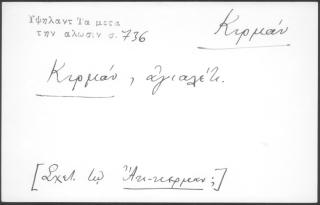 Υψηλαντ Τα μετα
την αλωσιν σ. 736
Κιρμάν
Κιρμάν, ἀγιαλέτι.
[Σχετ. τῷ Ἀκ-κερμαν;]